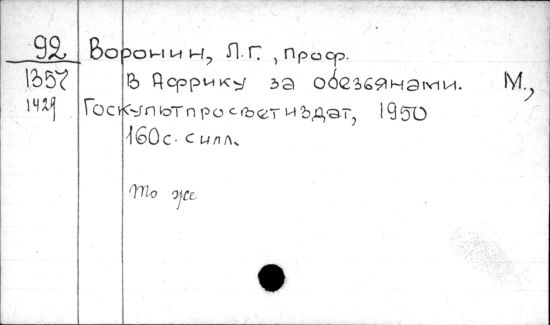 92 Воронин, Л.Г., проф.
1357 В Африку за обезьянами. М.,
1429 Госкультпросветиздат, 1950
160с. с илл.
То же